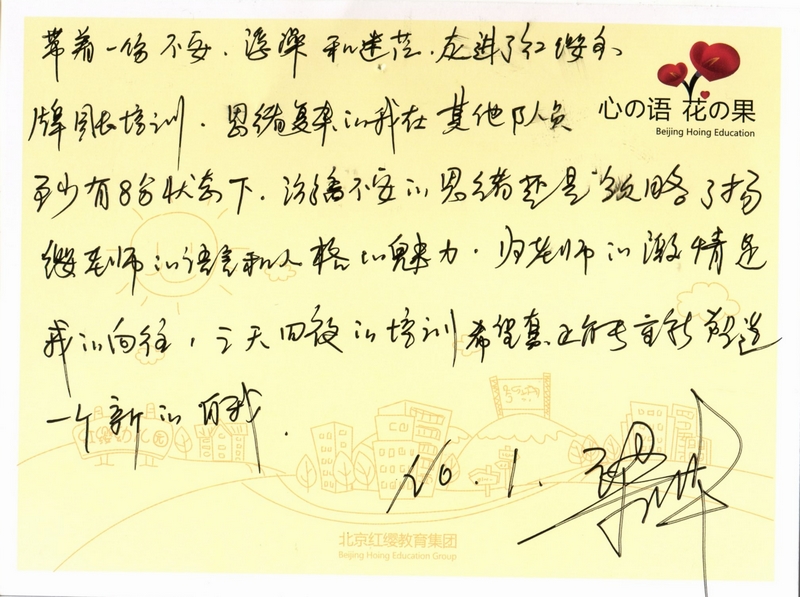 带着一份不安、浮躁和迷茫、走进了红缨金
牌园长培训。思绪复杂的我在其他队员
至少有8分状态下,
不安的思绪还是领略了杨
缨老师的语言和人格的魅力。冯老师的激情是
我的向往,三天四夜的培训希望真正能重新塑造
一个新的自我.
10.1.
心の语 花の果
Beijing Hoing Education
北京红缨教育集团
Beijing Hoing Education Group